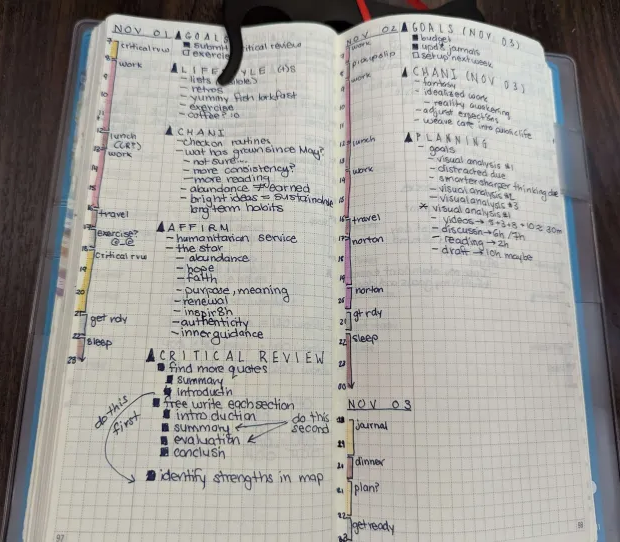 NOV 01
7
8
9
10
11
12
13
14
15
16
17
18
19
20
21
22
23
critical rvw
work
lunch
work
travel
exercise?
@_@
critical rvw
get rdy
sleep
GOALS
submit critical review
exercise
LIFESTYLE (+)s
- lists
- retros
- yummy fish brkfast
- exercise
- coffee?
CHANI
- check on routines
- wat has grown since May?
- not sure...
- more consistency?
- more reading
- abundance ≠ earned
- bright ideas = sustainable
long term habits
AFFIRM
- humanitarian service
- the star
- abundance
- hope
- faith
- purpose, meaning
- renewal
- inspir8n
- authenticity
- inner guidance
CRITICAL REVIEW
find more quotes
summary
introductn
free write each section
introduction
summary
evaluation
conclusn
identify strengths in map
do this
first
do this
second
97
NOV 02
work
work
lunch
work
travel
norton
norton
gt rdy
sleep
16
17
18
19
20
21
22
23
00
GOALS (NOV 03)
budget
upd8 jarnals
setup next week
CHANI (NOV 03)
- fantasy
- idealized work
- reality awakening
- adjust expectations
- weave care into public life
PLANNING
- goals
- visual analysis #1
- distracted due
- smarter sharper thinking due
- visual analysis #2
- visual analysis #3
* visual analysis #1
- videos → 5+3+8+10 ≈ 30m
- discussn → 6h/7h
- reading → 2h
- draft → 10h maybe
NOV 03
18
19
20
21
22
journal
dinner
plan?
get ready